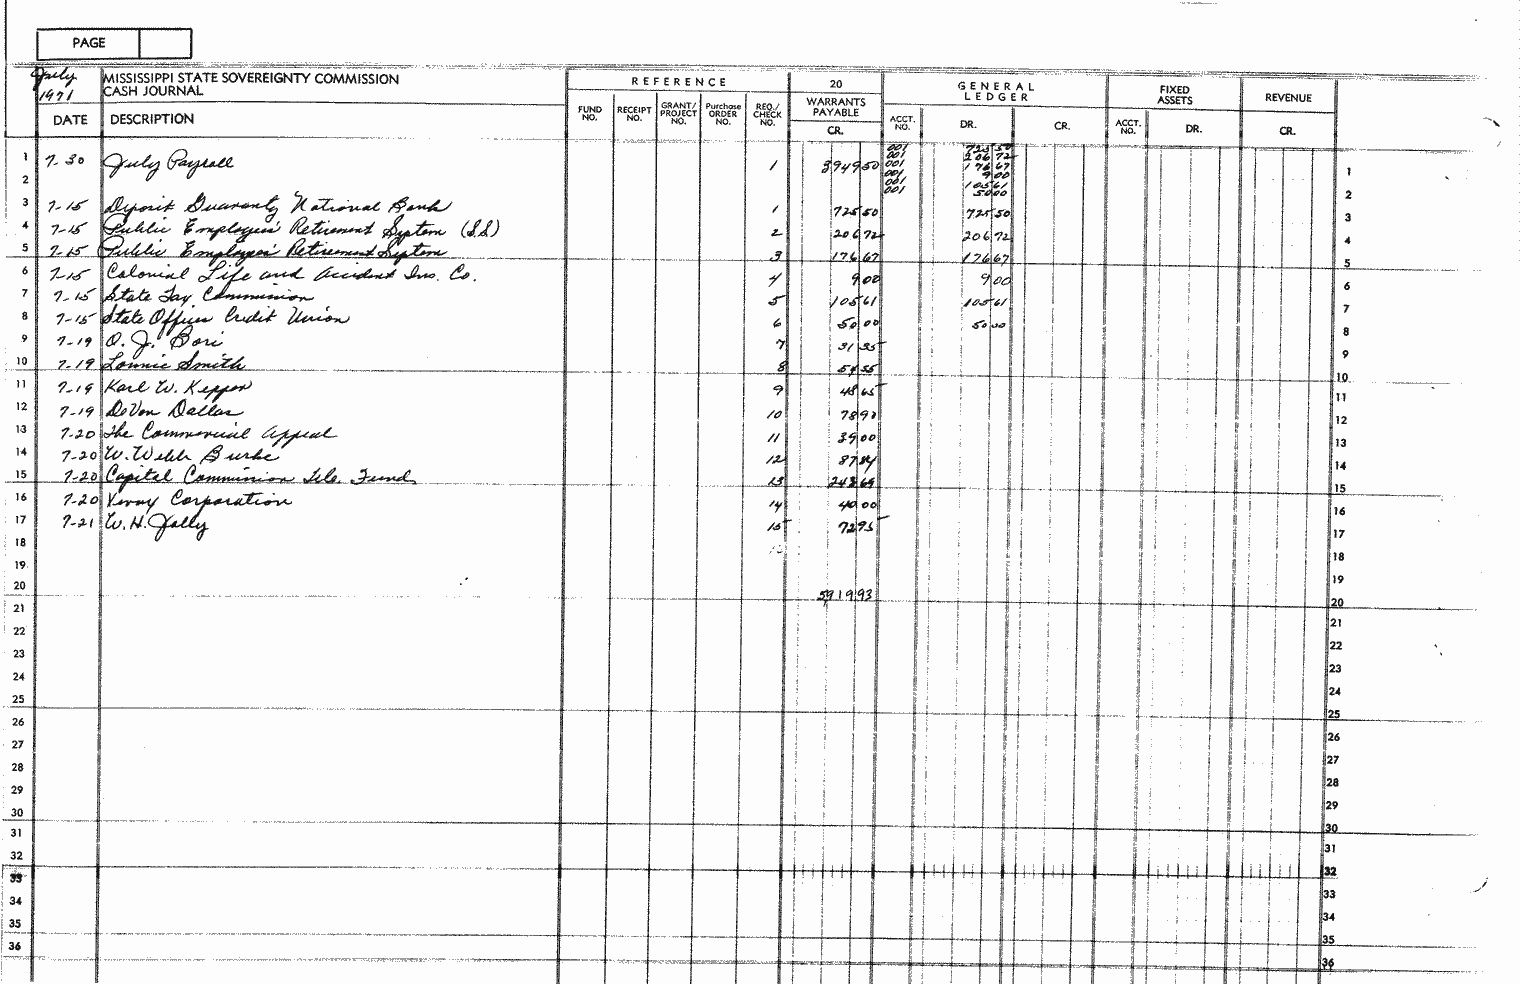 PAGE
July 1971
MISSISSIPPI STATE SOVEREIGNTY COMMISSION
CASH JOURNAL
REFERENCE
20
GENERAL LEDGER
FIXED ASSETS
REVENUE
DATE DESCRIPTION FUND NO. RECEIPT NO. GRANT/PROJECT NO. Purchase ORDER NO. REQ./CHECK NO. WARRANTS PAYABLE CR. ACCT. NO. DR. CR. ACCT. NO. DR. CR.
001 725 50
001 206 72
1 7-30 July Payroll 1 3949 50 001 176 67 1
001 9.00
001 105 61
2 001 50 00 2
3 7-15 Deposit Guaranty National Bank 1 725 50 725 50 3
4 7-15 Public Employees' Retirement System (S.S) 2 206 72 206 72 4
5 7-15 Public Employees' Retirement System 3 176 67 176 67 5
6 7-15 Colonial Life and Accident Ins. Co. 4 9.00 9.00 6
7 7-15 State Tax Commission 5 105 61 105 61 7
8 7-15 State Offices Credit Union 6 50.00 50 00 8
9 7-19 O. J. Bori 7 31 35 9
10 7-19 Lonnie Smith 8 10
11 7-19 Karl W. Kepper 9 48 65 11
12 7-19 DeVon Dallas 10 12
13 7-20 The Commercial Appeal 11 39 00 13
14 7-20 W. Webb Burke 12 14
15 7-20 Capitol Commission Tele. Fund 13 15
16 7-20 Xerox Corporation 14 40 00 16
17 7-21 W. H. Jolly 15 72 95 17
18 18
19 19
20 5919 93 20
21 21
22 22
23 23
24 24
25 25
26 26
27 27
28 28
29 29
30 30
31 31
32 32
33 33
34 34
35 35
36 36